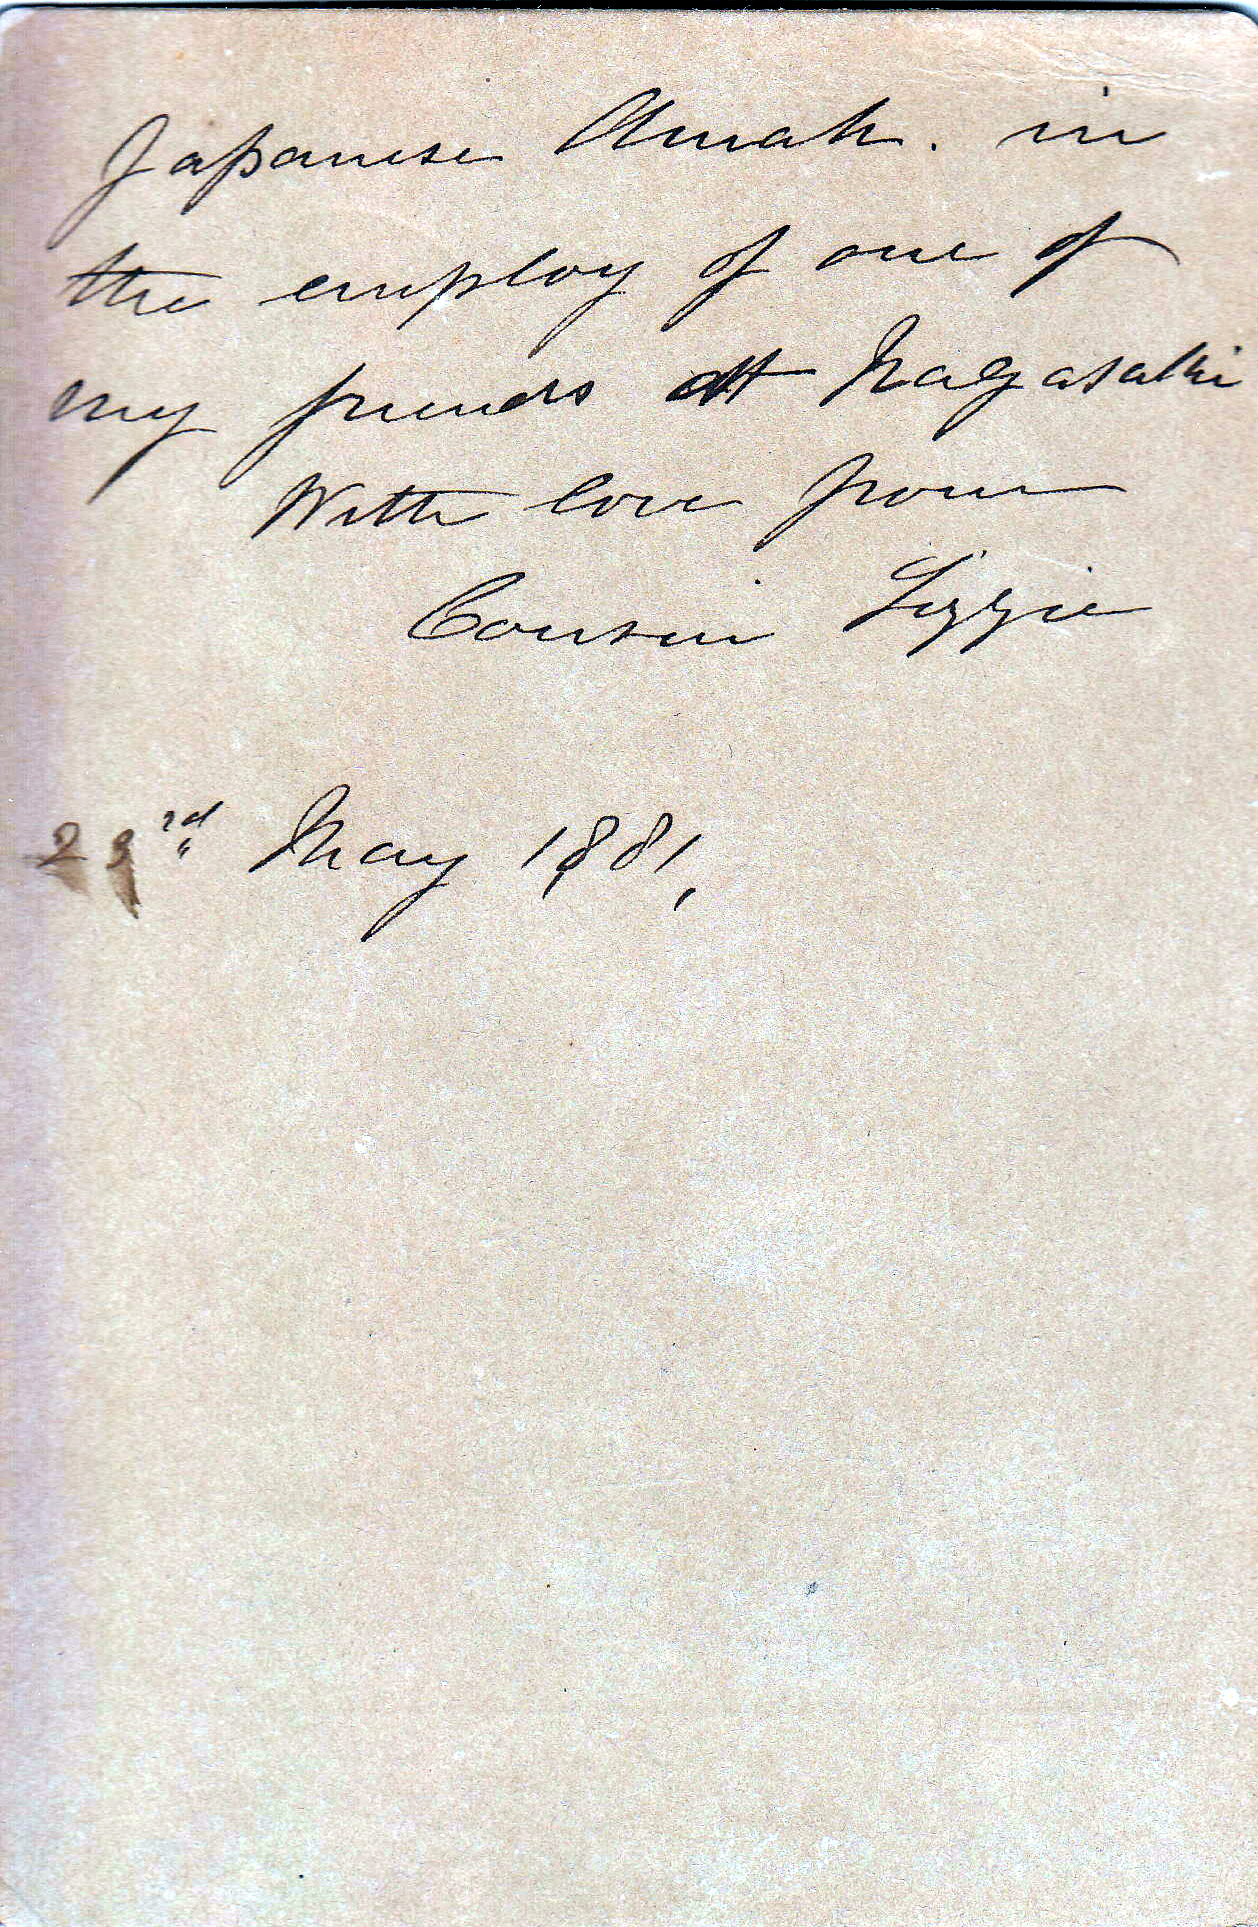 Japanese Amah. in
the employ of one of
my friends at Nagasaki
With love from
Cousin Lizzie
23rd May 1881,